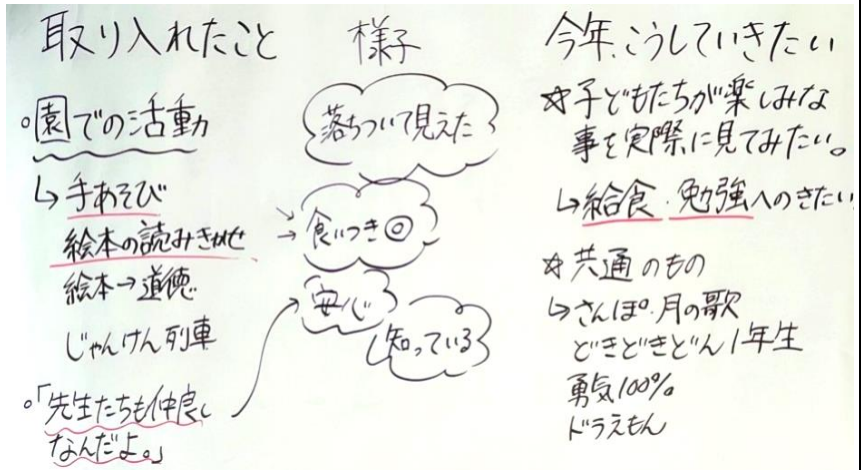 取り入れたこと
。園での活動
↳手あそび
絵本の読みきかせ
絵本→道徳
じゃんけん列車
。「先生たちも仲良し
なんだよ。」
様子
落ちついて見えた
→食いつき◎
→
安心
知っている
今年、こうしていきたい
☆子どもたちが楽しみな
事を実際に見てみたい。
↳給食・勉強へのきたい
☆共通のもの
↳さんぽ・月の歌
どきどきどん1年生
勇気100%
ドラえもん